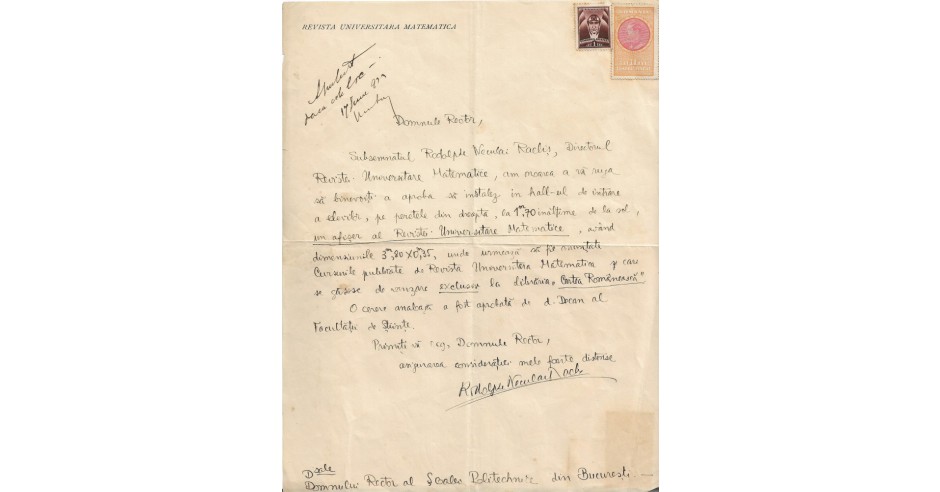 REVISTA UNIVERSITARA MATEMATICA
17 Iunie
Domnule Rector,
Subsemnatul Rodolphe Nicolai Racliș, Directorul
Revistei Universitare Matematice, am onoarea a vă ruga
să binevoiți a aproba să instalez in hall-ul de intrare
a elevilor, pe peretele din dreapta, la 1m,70 inălțime de la sol,
un afișer al Revistei Universitare Matematice, având
dimensiunile 3m,20 x 0m,35, unde urmează să fie anunțate
Cursurile publicate de Revista Universitara Matematica și care
se găsesc de vânzare exclusiv la librăria "Cartea Românească"
O cerere analoagă a fost aprobată de d. Decan al
Facultății de Științe.
Primiți vă rog, Domnule Rector,
asigurarea considerației mele foarte distinse
Rodolphe Nicolai Racliș
Dsale
Domnului Rector al Școalei Politechnice din București